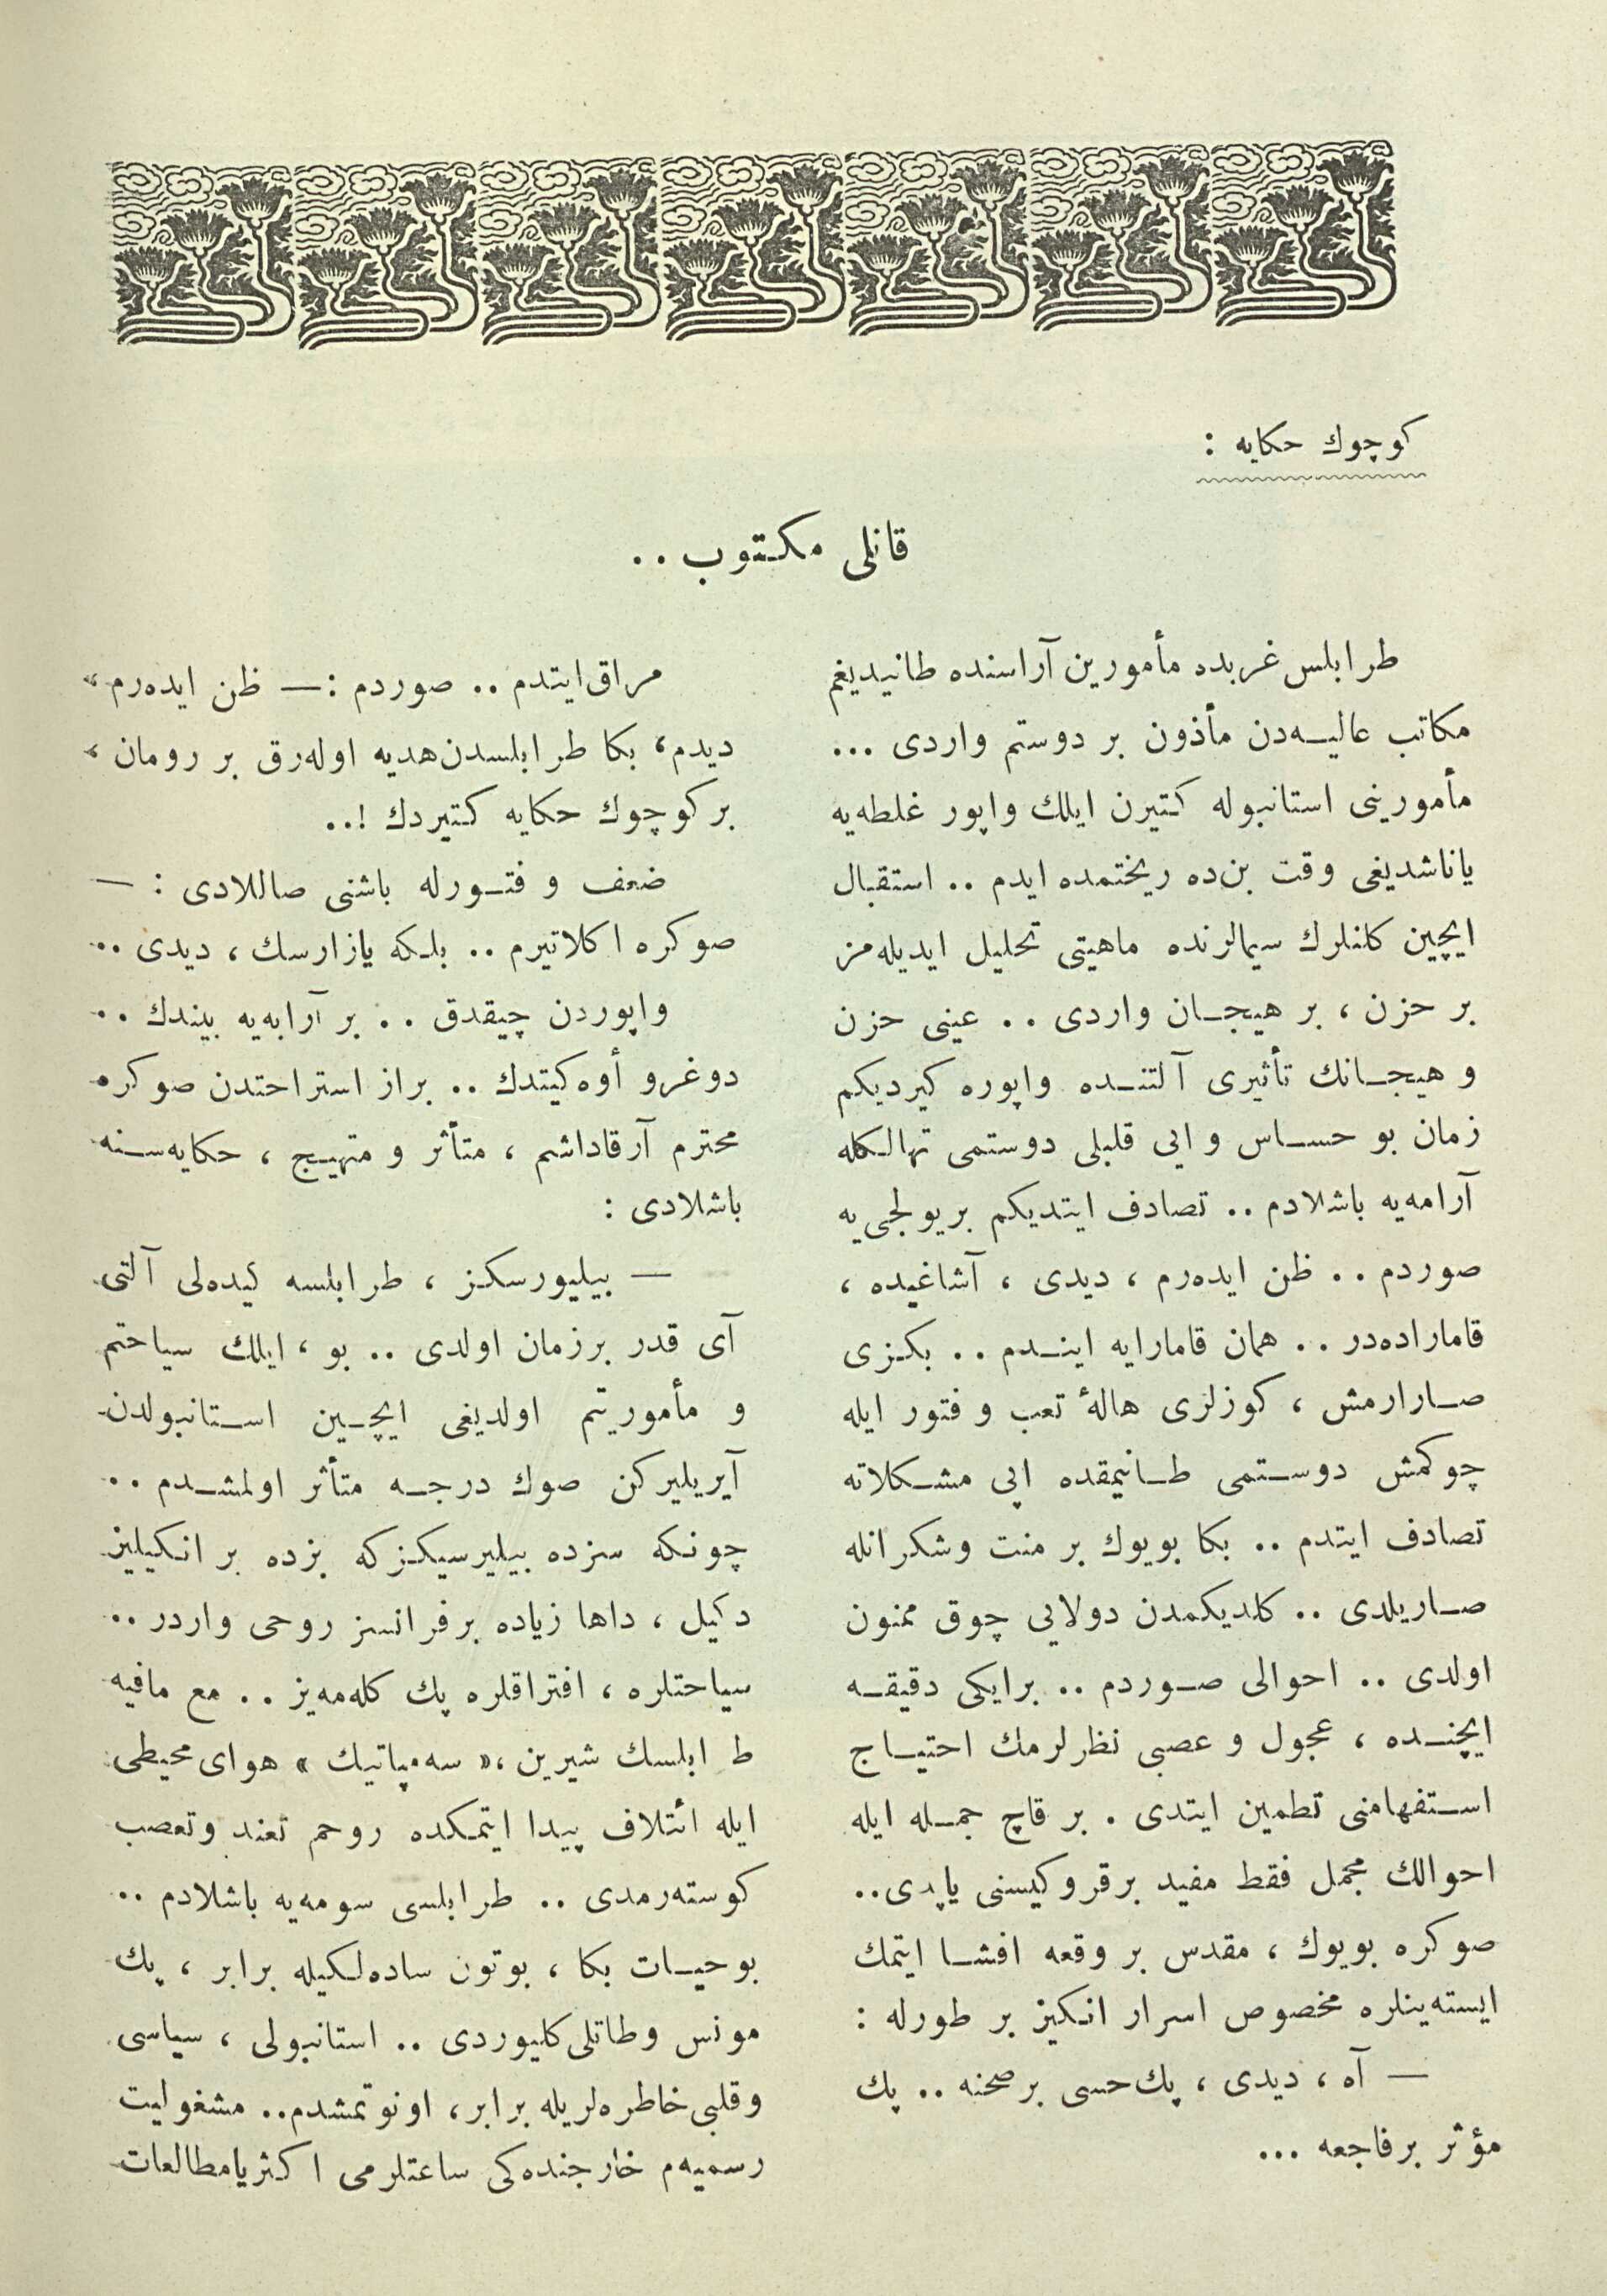 كوچوك حكايه :
قانلی مكتوب ..
طرابلس غربده مأمورين آراسنده طانيديغم
مكاتب عاليه‌دن مأذون بر دوستم واردی ...
مأمورينی استانبوله كتيرن ايلك واپور غلطه‌يه
ياناشديغی وقت بن‌ده ريختمده ايدم .. استقبال
ايچين كلنلرك سيمالرنده ماهيتی تحليل ايديله‌مز
بر حزن ، بر هيجان واردی .. عينی حزن
و هيجانك تأثيری آلتنده واپوره كيرديكم
زمان بو حساس و ايی قلبلی دوستمی تهالكله
آرامه‌يه باشلادم .. تصادف ايتديكم بر يولجی‌يه
صوردم .. ظن ايده‌رم ، ديدی ، آشاغيده ،
قاماراده‌در .. همان قامارايه ايندم .. بكزی
صارارمش ، كوزلری هالهٔ تعب و فتور ايله
چوكمش دوستمی طانيمقده اپی مشكلاته
تصادف ايتدم .. بكا بويوك بر منت وشكرانله
صاريلدی .. كلديكمدن دولايی چوق ممنون
اولدی .. احوالی صوردم .. برايكی دقيقه
ايچنده ، عجول و عصبی نظرلرمك احتياج
استفهامنی تطمين ايتدی . بر قاچ جمله ايله
احوالك مجمل فقط مفيد برقروكيسنی ياپدی..
صوكره بويوك ، مقدس بر وقعه افشا ايتمك
ايسته‌ينلره مخصوص اسرار انكيز بر طورله :
— آه ، ديدی ، پك حسی بر صحنه .. پك
مؤثر برفاجعه ...
مراق ايتدم .. صوردم :— ظن ايده‌رم ،
ديدم ، بكا طرابلسدن هديه اوله‌رق بر رومان ،
بر كوچوك حكايه كتيردك !..
ضعف و فتورله باشنی صاللادی : —
صوكره اكلاتيرم .. بلكه يازارسك ، ديدی ..
واپوردن چيقدق .. بر آرابه‌يه بيندك ..
دوغرو أوه كيتدك .. براز استراحتدن صوكره
محترم آرقاداشم ، متأثر و متهيج ، حكايه‌سنه
باشلادی :
— بيليورسكز ، طرابلسه كيده‌لی آلتی
آی قدر برزمان اولدی .. بو ، ايلك سياحتم
و مأموريتم اولديغی ايچين استانبولدن
آيريليركن صوك درجه متأثر اولمشدم ..
چونكه سزده بيليرسيكزكه بزده بر انكيليز
دكيل ، داها زياده برفرانسز روحی واردر ..
سياحتلره ، افتراقلره پك كله‌مه‌يز .. مع مافيه
ط ابلسك شيرين ،« سه‌مپاتيك » هوای محيطی
ايله ائتلاف پيدا ايتمكده روحم تعند وتعصب
كوسته‌رمدی .. طرابلسی سومه‌يه باشلادم ..
بوحيات بكا ، بوتون ساده‌لكيله برابر ، پك
مونس وطاتلی كليوردی .. استانبولی ، سياسی
وقلبی خاطره‌لريله برابر، اونوتمشدم.. مشغوليت
رسميه‌م خارجنده‌كی ساعتلرمی اكثريا مطالعات